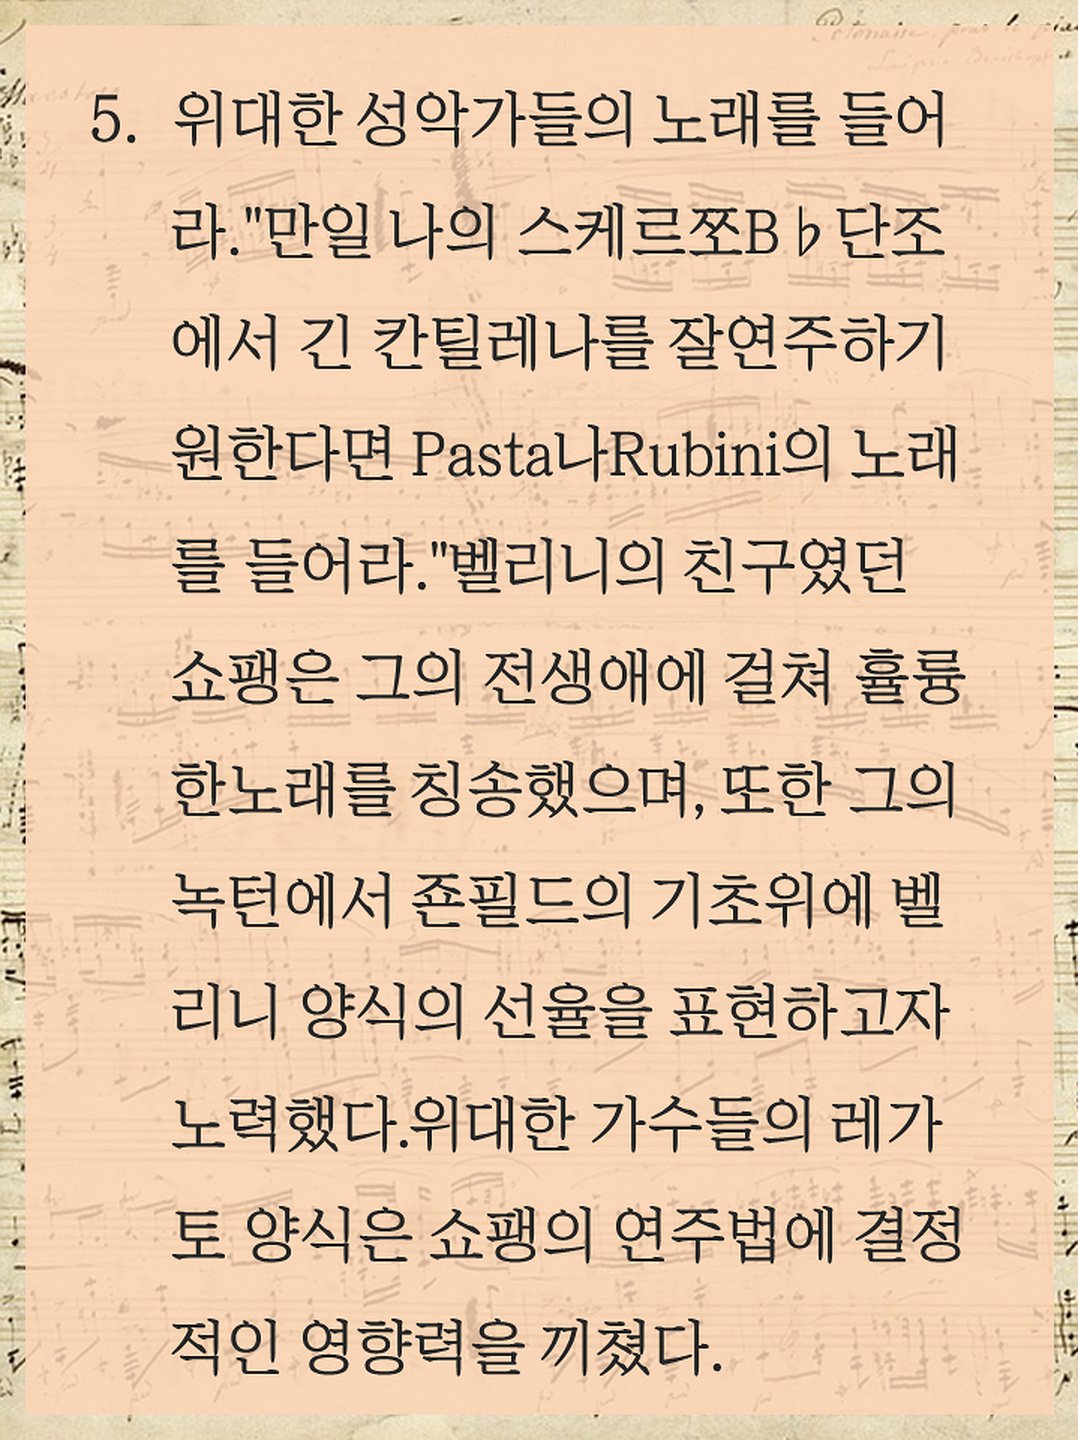 Polonaise, pour le pia
Leipsic Breitkopf
Maestoso
5. 위대한 성악가들의 노래를 들어
라."만일 나의 스케르쪼B♭단조
에서 긴 칸틸레나를 잘연주하기
원한다면 Pasta나Rubini의 노래
를 들어라."벨리니의 친구였던
쇼팽은 그의 전생애에 걸쳐 휼륭
한노래를 칭송했으며, 또한 그의
녹턴에서 죤필드의 기초위에 벨
리니 양식의 선율을 표현하고자
노력했다.위대한 가수들의 레가
토 양식은 쇼팽의 연주법에 결정
적인 영향력을 끼쳤다.